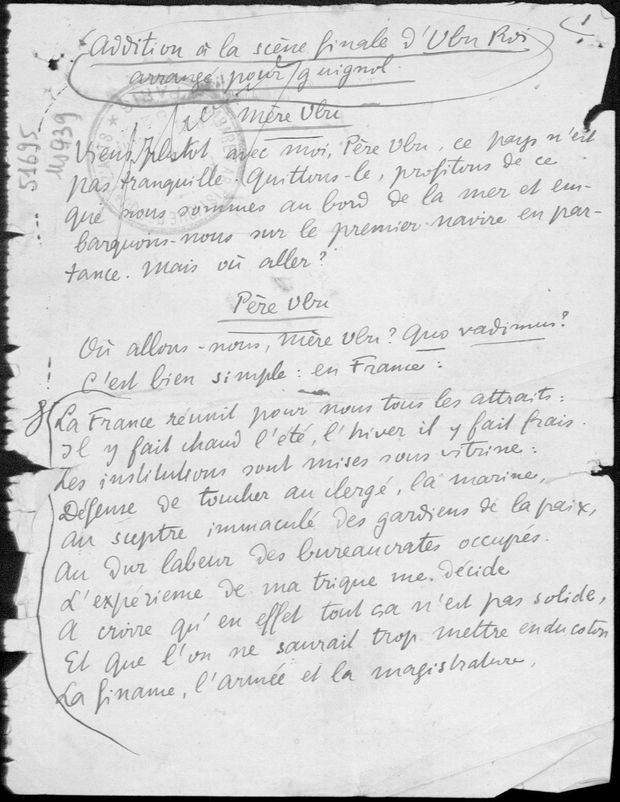 1
Addition à la scène finale d'Ubu Roi
arrangé pour guignol.
Mère Ubu
Viens plutôt avec moi, Père Ubu, ce pays n'est
pas tranquille. Quittons-le, profitons de ce
que nous sommes au bord de la mer et em-
barquons-nous sur le premier navire en par-
tance. Mais où aller?
Père Ubu
Où allons-nous, Mère Ubu? Quo vadimus?
C'est bien simple: en France:
La France réunit pour nous tous les attraits:
Il y fait chaud l'été, l'hiver il y fait frais.
Les institutions sont mises sous vitrine:
Défense de toucher au clergé, la marine,
Au sceptre immaculé des gardiens de la paix,
Au dur labeur des bureaucrates occupés.
L'expérience de ma trique me décide
A croire qu'en effet tout ça n'est pas solide,
Et que l'on ne saurait trop mettre en du coton
La finance, l'armée et la magistrature,
51695